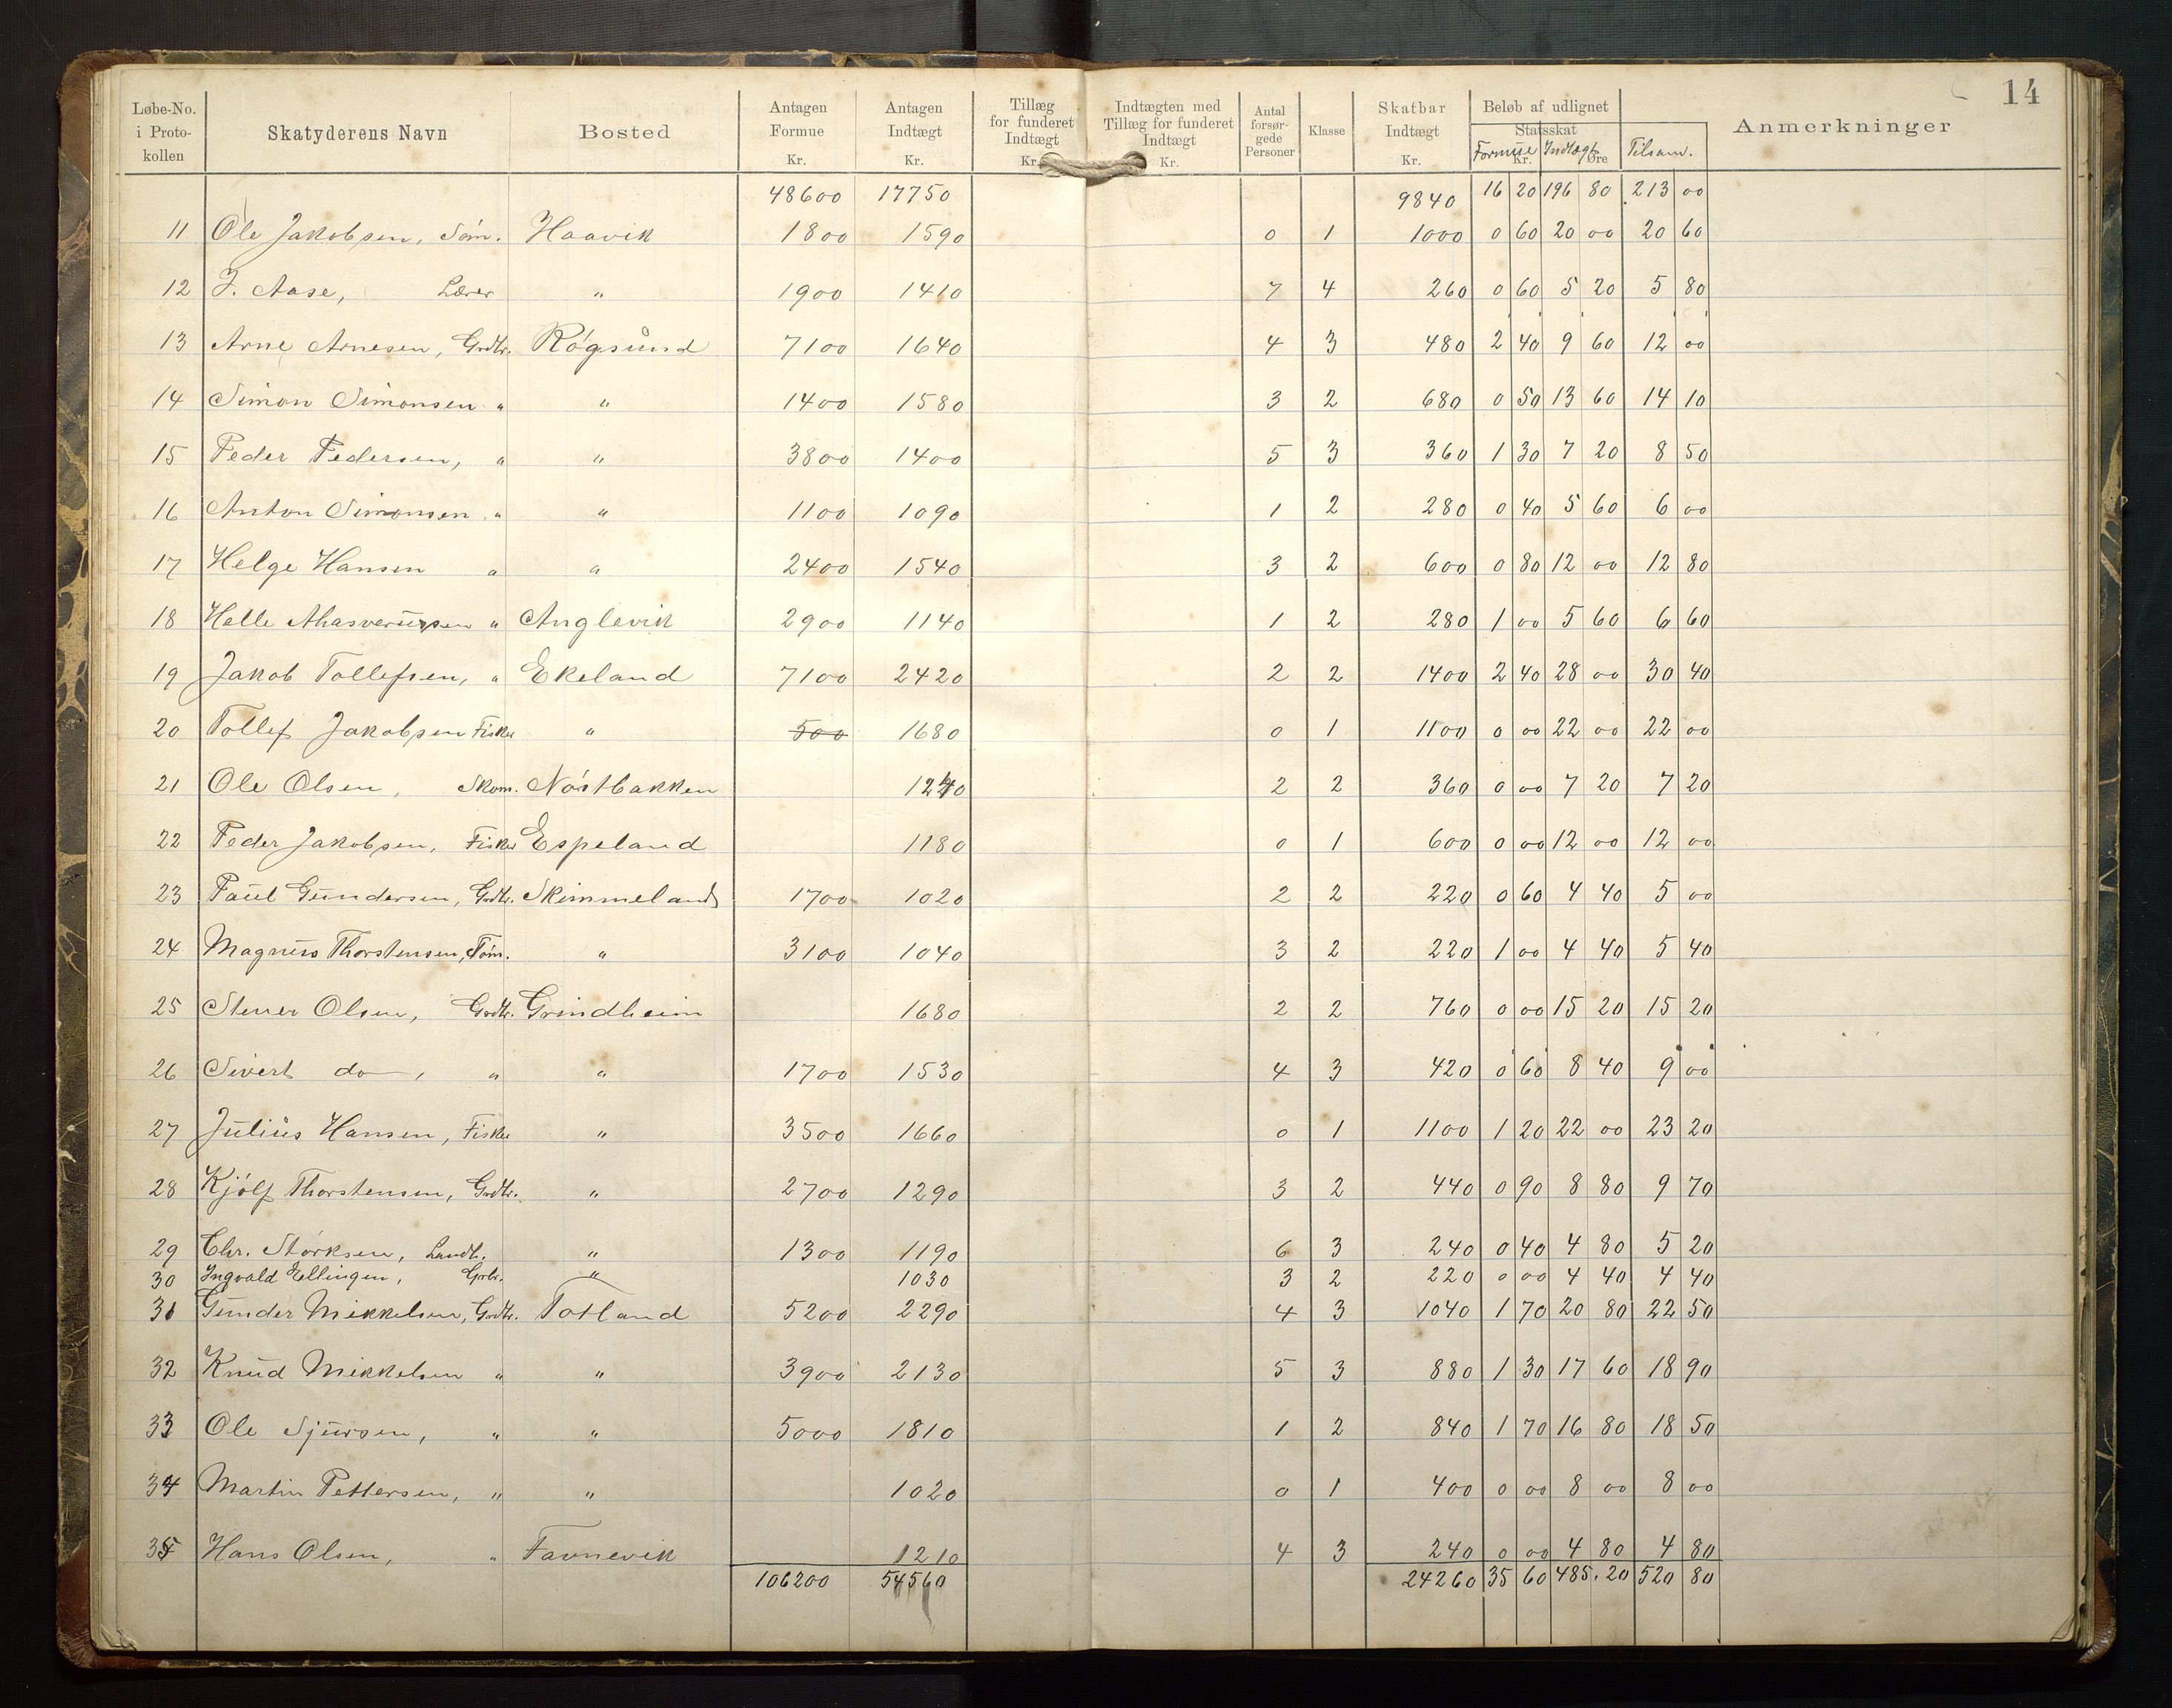 14
Løbe-No. i Proto-kollen | Skatyderens Navn | Bosted | Antagen Formue Kr. | Antagen Indtægt Kr. | Tillæg for funderet Indtægt Kr. | Indtægten med Tillæg for funderet Indtægt Kr. | Antal forsør-gede Personer | Klasse | Skatbar Indtægt Kr. | Beløb af udlignet Statsskat Kr. Øre Formue Indtægt Tilsam. | Anmerkninger
48600 17750 9840 16 20 196 80 213 00
11 Ole Jakobsen, Søm. Haavik 1800 1590 0 1 1000 0 60 20 00 20 60
12 J. Aase, Lærer " 1900 1410 7 4 260 0 60 5 20 5 80
13 Arne Arnesen, Grdbr. Røgsund 7100 1640 4 3 480 2 40 9 60 12 00
14 Simon Simonsen " " 1400 1580 3 2 680 0 50 13 60 14 10
15 Peder Pedersen, " " 3800 1400 5 3 360 1 30 7 20 8 50
16 Anton Simonsen " " 1100 1090 1 2 280 0 40 5 60 6 00
17 Helge Hansen " " 2400 1540 3 2 600 0 80 12 00 12 80
18 Helle Ahasverussen " Anglevik 2900 1140 1 2 280 1 00 5 60 6 60
19 Jakob Tollefsen, " Ekeland 7100 2420 2 2 1400 2 40 28 00 30 40
20 Tollef Jakobsen Fisker " 500 1680 0 1 1100 0 00 22 00 22 00
21 Ole Olsen, Skom. Nøstbakken 1240 2 2 360 0 00 7 20 7 20
22 Peder Jakobsen, Fisker Espeland 1180 0 1 600 0 00 12 00 12 00
23 Paul Gundersen, Grdbr. Skimmeland 1700 1020 2 2 220 0 60 4 40 5 00
24 Magnus Thorstensen, Tøm. " 3100 1040 3 2 220 1 00 4 40 5 40
25 Stener Olsen, Grdbr. Grindheim 1680 2 2 760 0 00 15 20 15 20
26 Sivert do, " " 1700 1530 4 3 420 0 60 8 40 9 00
27 Julius Hansen, Fisker " 3500 1660 0 1 1100 1 20 22 00 23 20
28 Kjølf Thorstensen, Grdbr. " 2700 1290 3 2 440 0 90 8 80 9 70
29 Chr. Størksen, Landh. " 1300 1190 6 3 240 0 40 4 80 5 20
30 Ingvald Ellingsen, " 1030 3 2 220 0 00 4 40 4 40
31 Gunder Mikkelsen, Grdbr. Totland 5200 2290 4 3 1040 1 70 20 80 22 50
32 Knud Mikkelsen " " 3900 2130 5 3 880 1 30 17 60 18 90
33 Ole Sjursen, " " 5000 1810 1 2 840 1 70 16 80 18 50
34 Martin Pettersen, " " 1020 0 1 400 0 00 8 00 8 00
35 Hans Olsen, " Favnevik 1210 4 3 240 0 00 4 80 4 80
106200 54560 24260 35 60 485.20 520 80